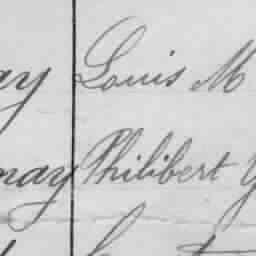 ay Louis M
nay Philibert